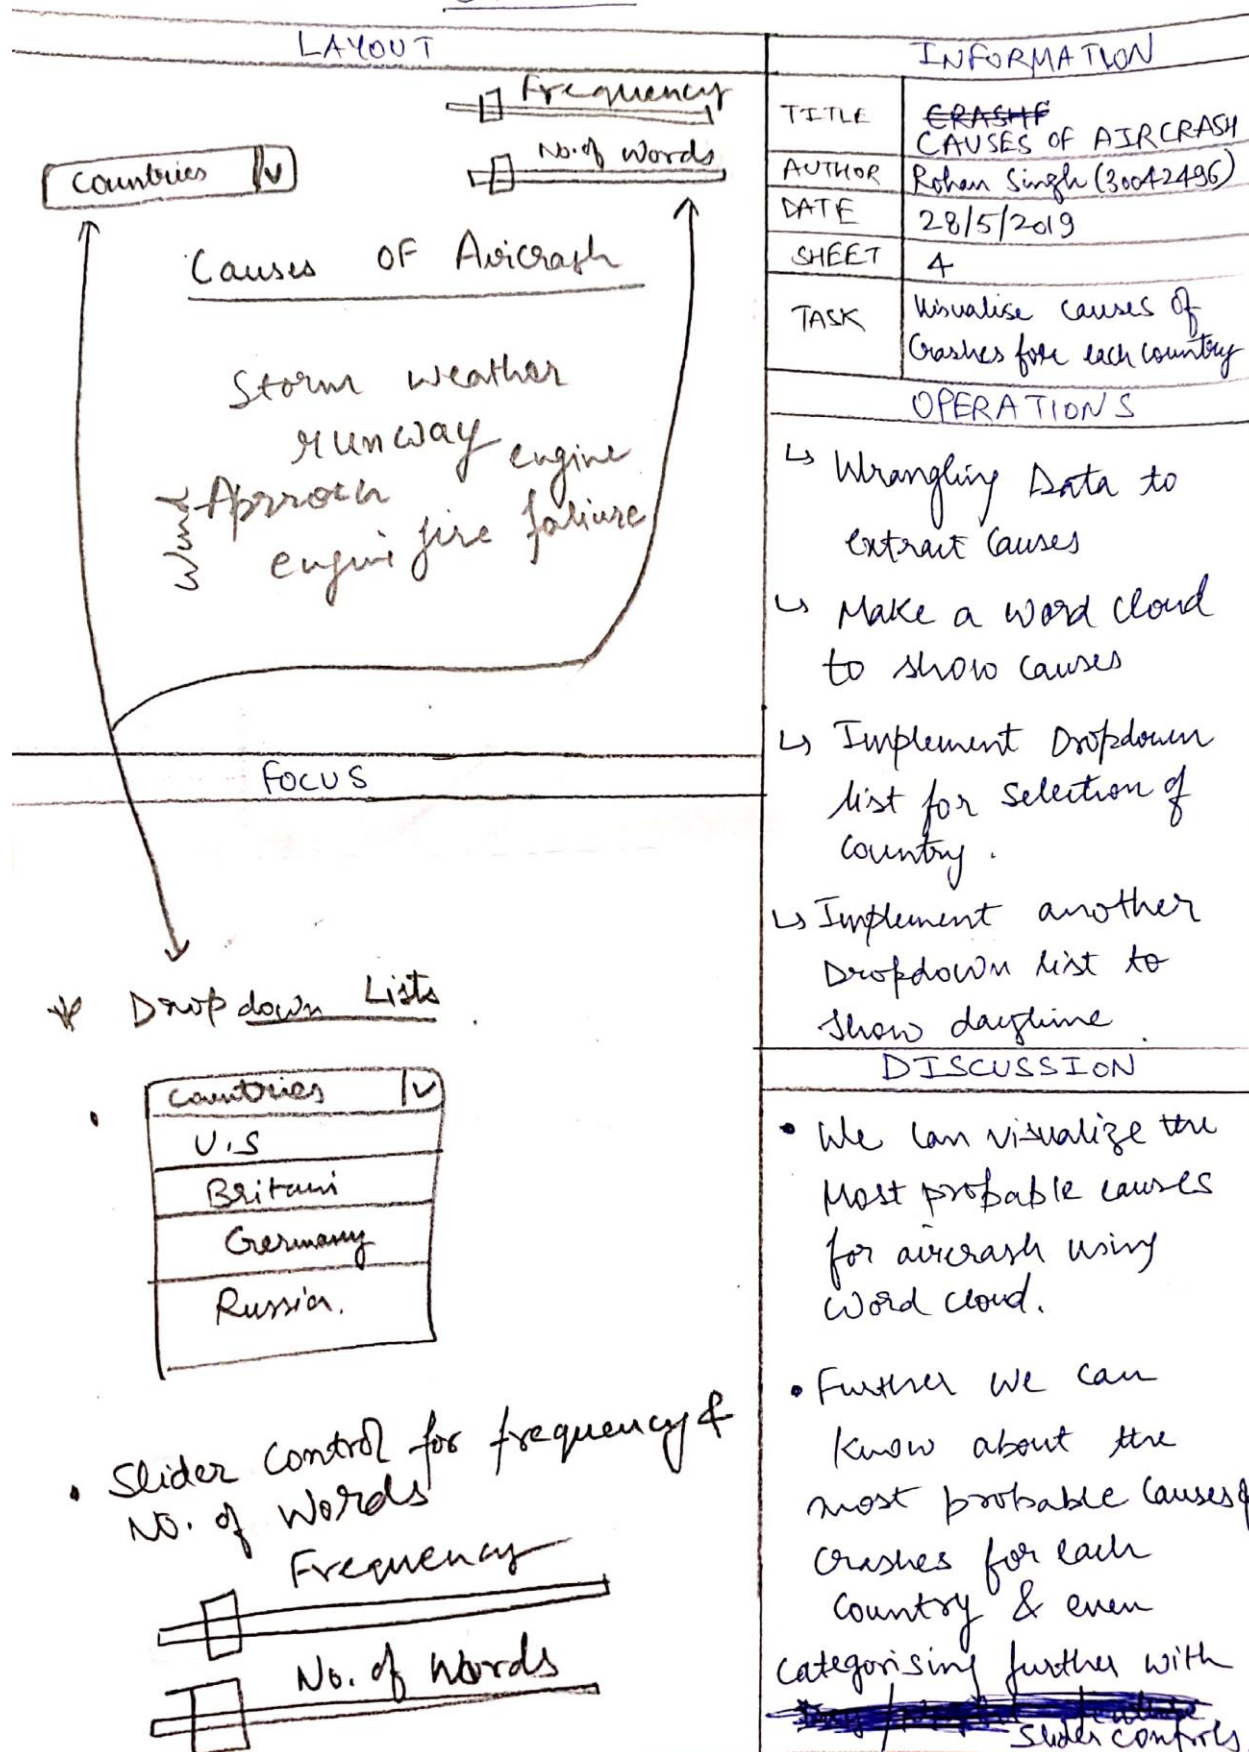 LAYOUT
Frequency
No. of Words
Countries
Causes OF Aircrash
Storm weather
runway
engine
Approch
Wind
engine fire faliure
FOCUS
Dropdown Lists
Countries
U.S
Britain
Germany
Russia.
• Slider Control for frequency &
No. of Words
Frequency
No. of Words
INFORMATION
TITLE
CRASHF
CAUSES OF AIRCRASH
AUTHOR Rohan Singh (30042496)
DATE 28/5/2019
SHEET 4
TASK Visualise causes of
Crashes for each country
OPERATIONS
↳ Wrangling Data to
extract causes
↳ Make a word cloud
to show causes
↳ Implement Dropdown
list for selection of
country.
↳ Implement another
Dropdown list to
show daytime.
DISCUSSION
• We can visualize the
Most probable causes
for aircrash using
Word cloud.
• Further we can
know about the
most probable causes of
crashes for each
country & even
categorising further with
Slider controls.